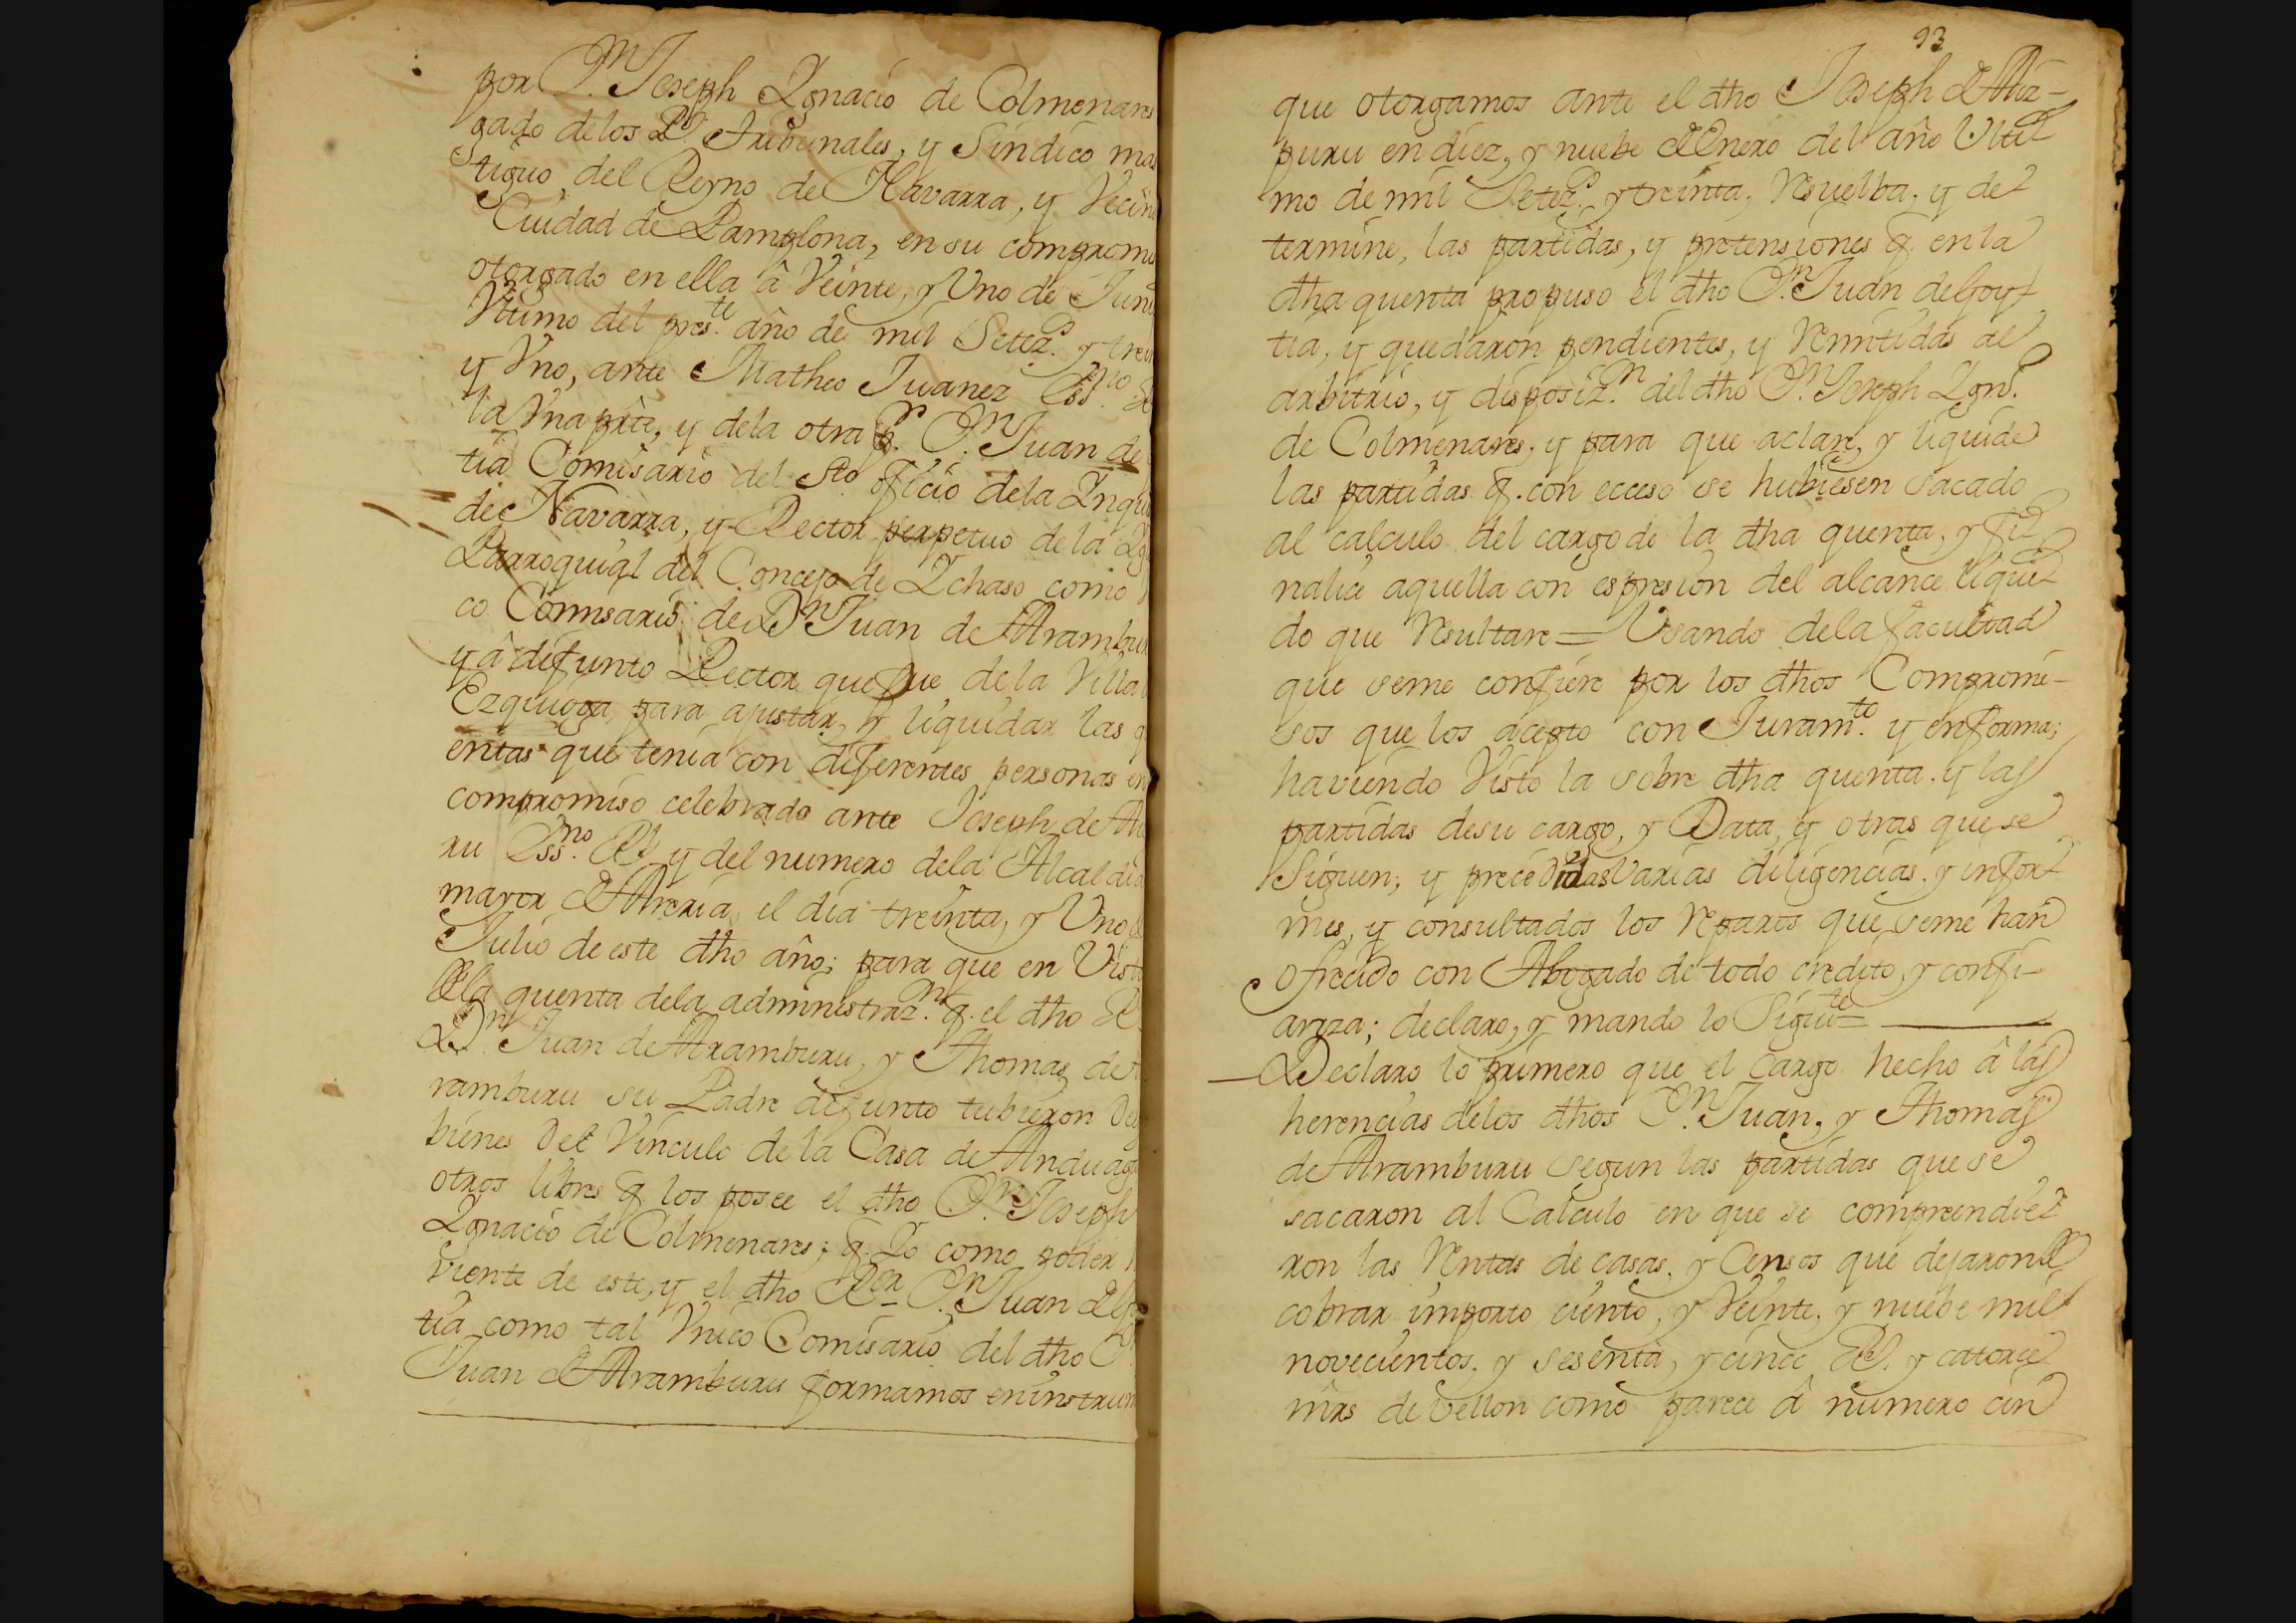 por D.n Joseph Ignacio de Colmenares
gado de los R.s Tribunales, y Sindico mas
tiguo del Reyno de Navarra, y Vecin
Ciudad de Pamplona, en su comprom
otorgado en ella â Veinte, y Uno de Juni
Vltimo del pres.te año de mil Setez.s y trein
y Vno, ante Matheo Juanez Ess.no de
la Vna pârte, y dela otra p.r D.n Juan de
tia Comisario del S.to oficio dela Inqui
de Navarra, y Rector perpetuo de la Igl
Parroquial del Concejo de Ichaso como
co Comisario de D.n Juan de Arambur
yâ difunto Rector que fue de la Villa
Ezquioga, para ajustar, y liquidar las q
entas que tenia con diferentes personas en
compromiso celebrado ante Joseph de Au
ru Ess.no R.l y del numero dela Alcaldia
mayor de Areria, el dia treinta, y Uno
Julio de este dho año; para que en Vist
dela quenta dela administraz.n q. el dho
D.n Juan de Aramburu, y Thomas de
ramburu su Padre difunto tubieron de
bienes del Vinculo de la Casa de Anduaga
otros libres q. los posee el dho D.n Joseph
Ignacio de Colmenares; q. Yo como poder
viente de este, y el dho R.or D.n Juan de
tia como tal Vnico Comisario del dho D.
Juan de Aramburu formamos en instrum
93
que otorgamos ante el dho Joseph de Auz-
puru en diez, y nuebe de Enero del año Ulti
mo de mil Setez.s y treinta, Resuelba, y de
termine, las partidas, y pretensiones q. en la
dha quenta propuso el dho D.n Juan de Goy
tia, y quedaron pendientes, y Remitidas al
arbitrio, y disposiz.n del dho D.n Joseph Ign.o
de Colmenares, y para que aclare, y liquide
las partidas q. con ecceso se hubiesen sacado
al calculo del cargo de la dha quenta, y fi
nalice aquella con espresion del alcance liqui
do que Resultare = Usando dela facultad
que seme confiere por los dhos Compromi-
sos que los acepto con Juram.to y en forma;
haviendo Visto la sobre dha quenta, y las
partidas desu cargo, y Data, y otras que se
Siguen; y precedidas Varias diligencias, y infor
mes, y consultados los Reparos que seme han
ofrecido con Abogado de todo credito, y confi-
anza; declaro, y mando lo Siguī.te =
Declaro lo primero que el cargo hecho â las
herencias delos dhos D.n Juan, y Thomas
de Aramburu segun las partidas que se
sacaron al Calculo en que se comprendie
ron las Rentas de casas, y Censos que dejaron de
cobrar importo ciento, y Veinte, y nuebe mil
novecientos, y sesenta, y cinco R.s y catorce
mrs de Vellon como parece â numero cin